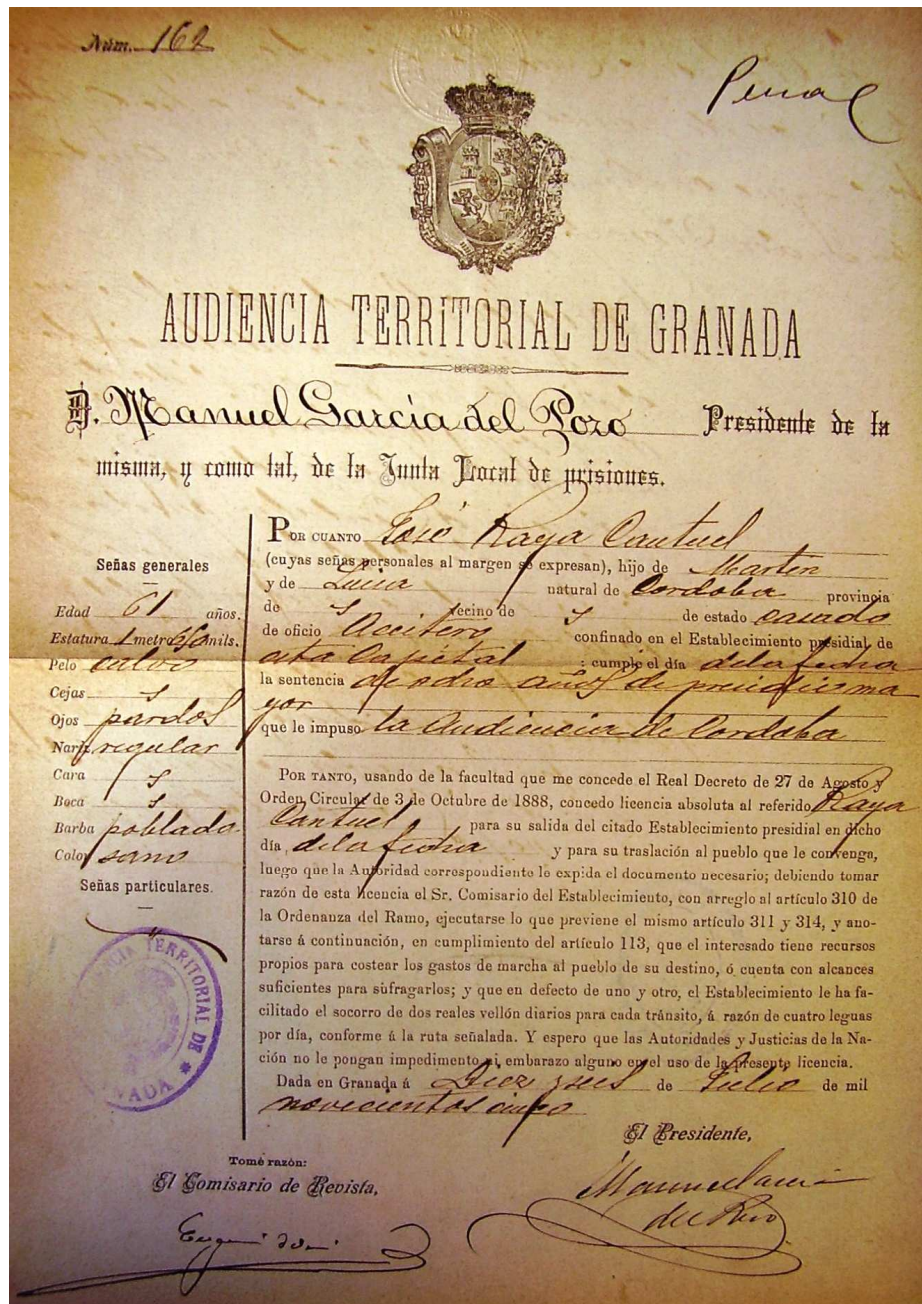 Núm. 162
Penal
AUDIENCIA TERRITORIAL DE GRANADA
D. Manuel García del Pozo Presidente de la
misma, y como tal, de la Junta Local de prisiones.
POR CUANTO José Raya Cantuel
(cuyas señas personales al margen se expresan), hijo de Martín
y de Lucia natural de Cordoba provincia
de vecino de de estado casado
de oficio Aceitero confinado en el Establecimiento presidial de
esta Capital : cumple el día de la fecha
la sentencia de ocho años de presidio ma
yor
que le impuso la Audiencia de Cordoba
Señas generales
Edad 61 años.
Estatura 1 metro mils.
Pelo calvo
Cejas
Ojos pardos
Nariz regular
Cara
Boca
Barba poblada
Color sano
Señas particulares.
POR TANTO, usando de la facultad que me concede el Real Decreto de 27 de Agosto y
Orden Circular de 3 de Octubre de 1888, concedo licencia absoluta al referido Raya
Cantuel para su salida del citado Establecimiento presidial en dicho
día, de la fecha y para su traslación al pueblo que le convenga,
luego que la Autoridad correspondiente le expida el documento necesario; debiendo tomar
razón de esta licencia el Sr. Comisario del Establecimiento, con arreglo al artículo 310 de
la Ordenanza del Ramo, ejecutarse lo que previene el mismo artículo 311 y 314, y ano-
tarse á continuación, en cumplimiento del artículo 113, que el interesado tiene recursos
propios para costear los gastos de marcha al pueblo de su destino, ó cuenta con alcances
suficientes para sufragarlos; y que en defecto de uno y otro, el Establecimiento le ha fa-
cilitado el socorro de dos reales vellón diarios para cada tránsito, á razón de cuatro leguas
por día, conforme á la ruta señalada. Y espero que las Autoridades y Justicias de la Na-
ción no le pongan impedimento ni embarazo alguno en el uso de la presente licencia.
Dada en Granada á de Julio de mil
novecientos cinco
El Presidente,
Manuel García
del Pozo
Tomé razón:
El Comisario de Revista,
TERRITORIAL DE